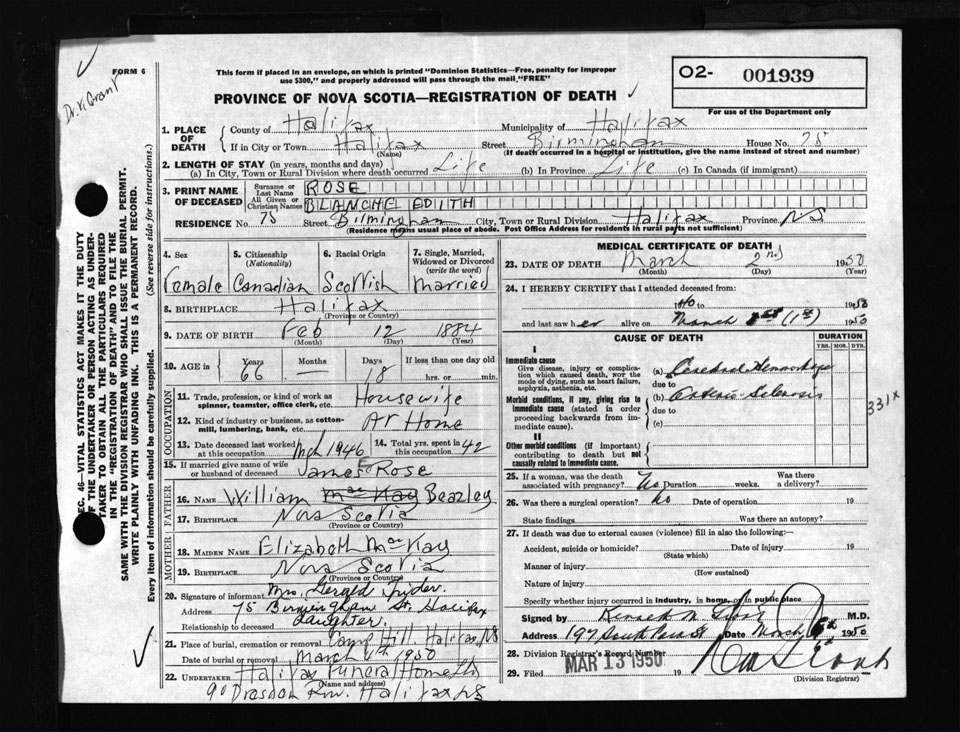 FORM 6
Dr. K. Grant
This form if placed in an envelope, on which is printed "Dominion Statistics—Free, penalty for improper
use $300," and properly addressed will pass through the mail "FREE"
PROVINCE OF NOVA SCOTIA—REGISTRATION OF DEATH
O2- 001939
For use of the Department only
1. PLACE OF DEATH
County of Halifax Municipality of Halifax
If in City or Town Halifax Street Birmingham House No. 75
(Name) (If death occurred in a hospital or institution, give the name instead of street and number)
2. LENGTH OF STAY (in years, months and days)
(a) In City, Town or Rural Division where death occurred Life (b) In Province Life (c) In Canada (if immigrant)
3. PRINT NAME OF DECEASED
Surname or Last Name ROSE
All Given or Christian Names BLANCHE EDITH
RESIDENCE No. 75 Street Birmingham City, Town or Rural Division Halifax Province N.S
(Residence means usual place of abode. Post Office Address for residents in rural parts not sufficient)
4. Sex 5. Citizenship (Nationality) 6. Racial Origin 7. Single, Married, Widowed or Divorced (write the word)
Female Canadian Scottish Married
8. BIRTHPLACE Halifax
(Province or Country)
9. DATE OF BIRTH Feb 12 1884
(Month) (Day) (Year)
10. AGE in Years Months Days If less than one day old
66 — 18 hrs. or min.
OCCUPATION
11. Trade, profession, or kind of work as spinner, teamster, office clerk, etc. Housewife
12. Kind of industry or business, as cotton-mill, lumbering, bank, etc. At Home
13. Date deceased last worked at this occupation Mch 1946 14. Total yrs. spent in 42
15. If married give name of wife or husband of deceased James E Rose
FATHER
16. NAME William MacKay Beazley
17. BIRTHPLACE Nova Scotia
(Province or Country)
MOTHER
18. MAIDEN NAME Elizabeth MacKay
19. BIRTHPLACE Nova Scotia
(Province or Country)
20. Signature of informant Mrs. Gerald
Address 75 Birmingham St. Halifax
Relationship to deceased daughter.
21. Place of burial, cremation or removal Camp Hill, Halifax, NS
Date of burial or removal March 4th 1950
22. UNDERTAKER Halifax Funeral Home
(Name and address)
90 Dresden Row. Halifax NS
MEDICAL CERTIFICATE OF DEATH
23. DATE OF DEATH March 2nd 1950
(Month) (Day) (Year)
24. I HEREBY CERTIFY that I attended deceased from:
to 1950
and last saw her alive on March 1st (1st) 1950
CAUSE OF DEATH DURATION
YRS. MOS. DYS.
I
Immediate cause
Give disease, injury or complication which caused death, not the mode of dying, such as heart failure, asphyxia, asthenia, etc.
(a) Cerebral Hemorrhage
due to
Morbid conditions, if any, giving rise to immediate cause (stated in order proceeding backwards from immediate cause).
(b) Arterio Sclerosis
due to
(c)
331X
II
Other morbid conditions (if important) contributing to death but not causally related to immediate cause.
25. If a woman, was the death associated with pregnancy? No Duration weeks. Was there a delivery?
26. Was there a surgical operation? No Date of operation 19
State findings Was there an autopsy?
27. If death was due to external causes (violence) fill in also the following:
Accident, suicide or homicide? Date of injury 19
(State which)
Manner of injury
(How sustained)
Nature of injury
Specify whether injury occurred in industry, in home, or in public place
Signed by Kenneth M. Grant M.D.
Address 197 South Park St Date March 1950
28. Division Registrar's Record Number
29. Filed MAR 13 1950 19
(Division Registrar)
SEC. 46—VITAL STATISTICS ACT MAKES IT THE DUTY
OF THE UNDERTAKER OR PERSON ACTING AS UNDER-
TAKER TO OBTAIN ALL THE PARTICULARS REQUIRED
IN THE "REGISTRATION OF DEATH" AND TO FILE THE
SAME WITH THE DIVISION REGISTRAR WHO SHALL ISSUE THE BURIAL PERMIT.
WRITE PLAINLY WITH UNFADING INK. THIS IS A PERMANENT RECORD.
Every item of information should be carefully supplied. (See reverse side for instructions.)